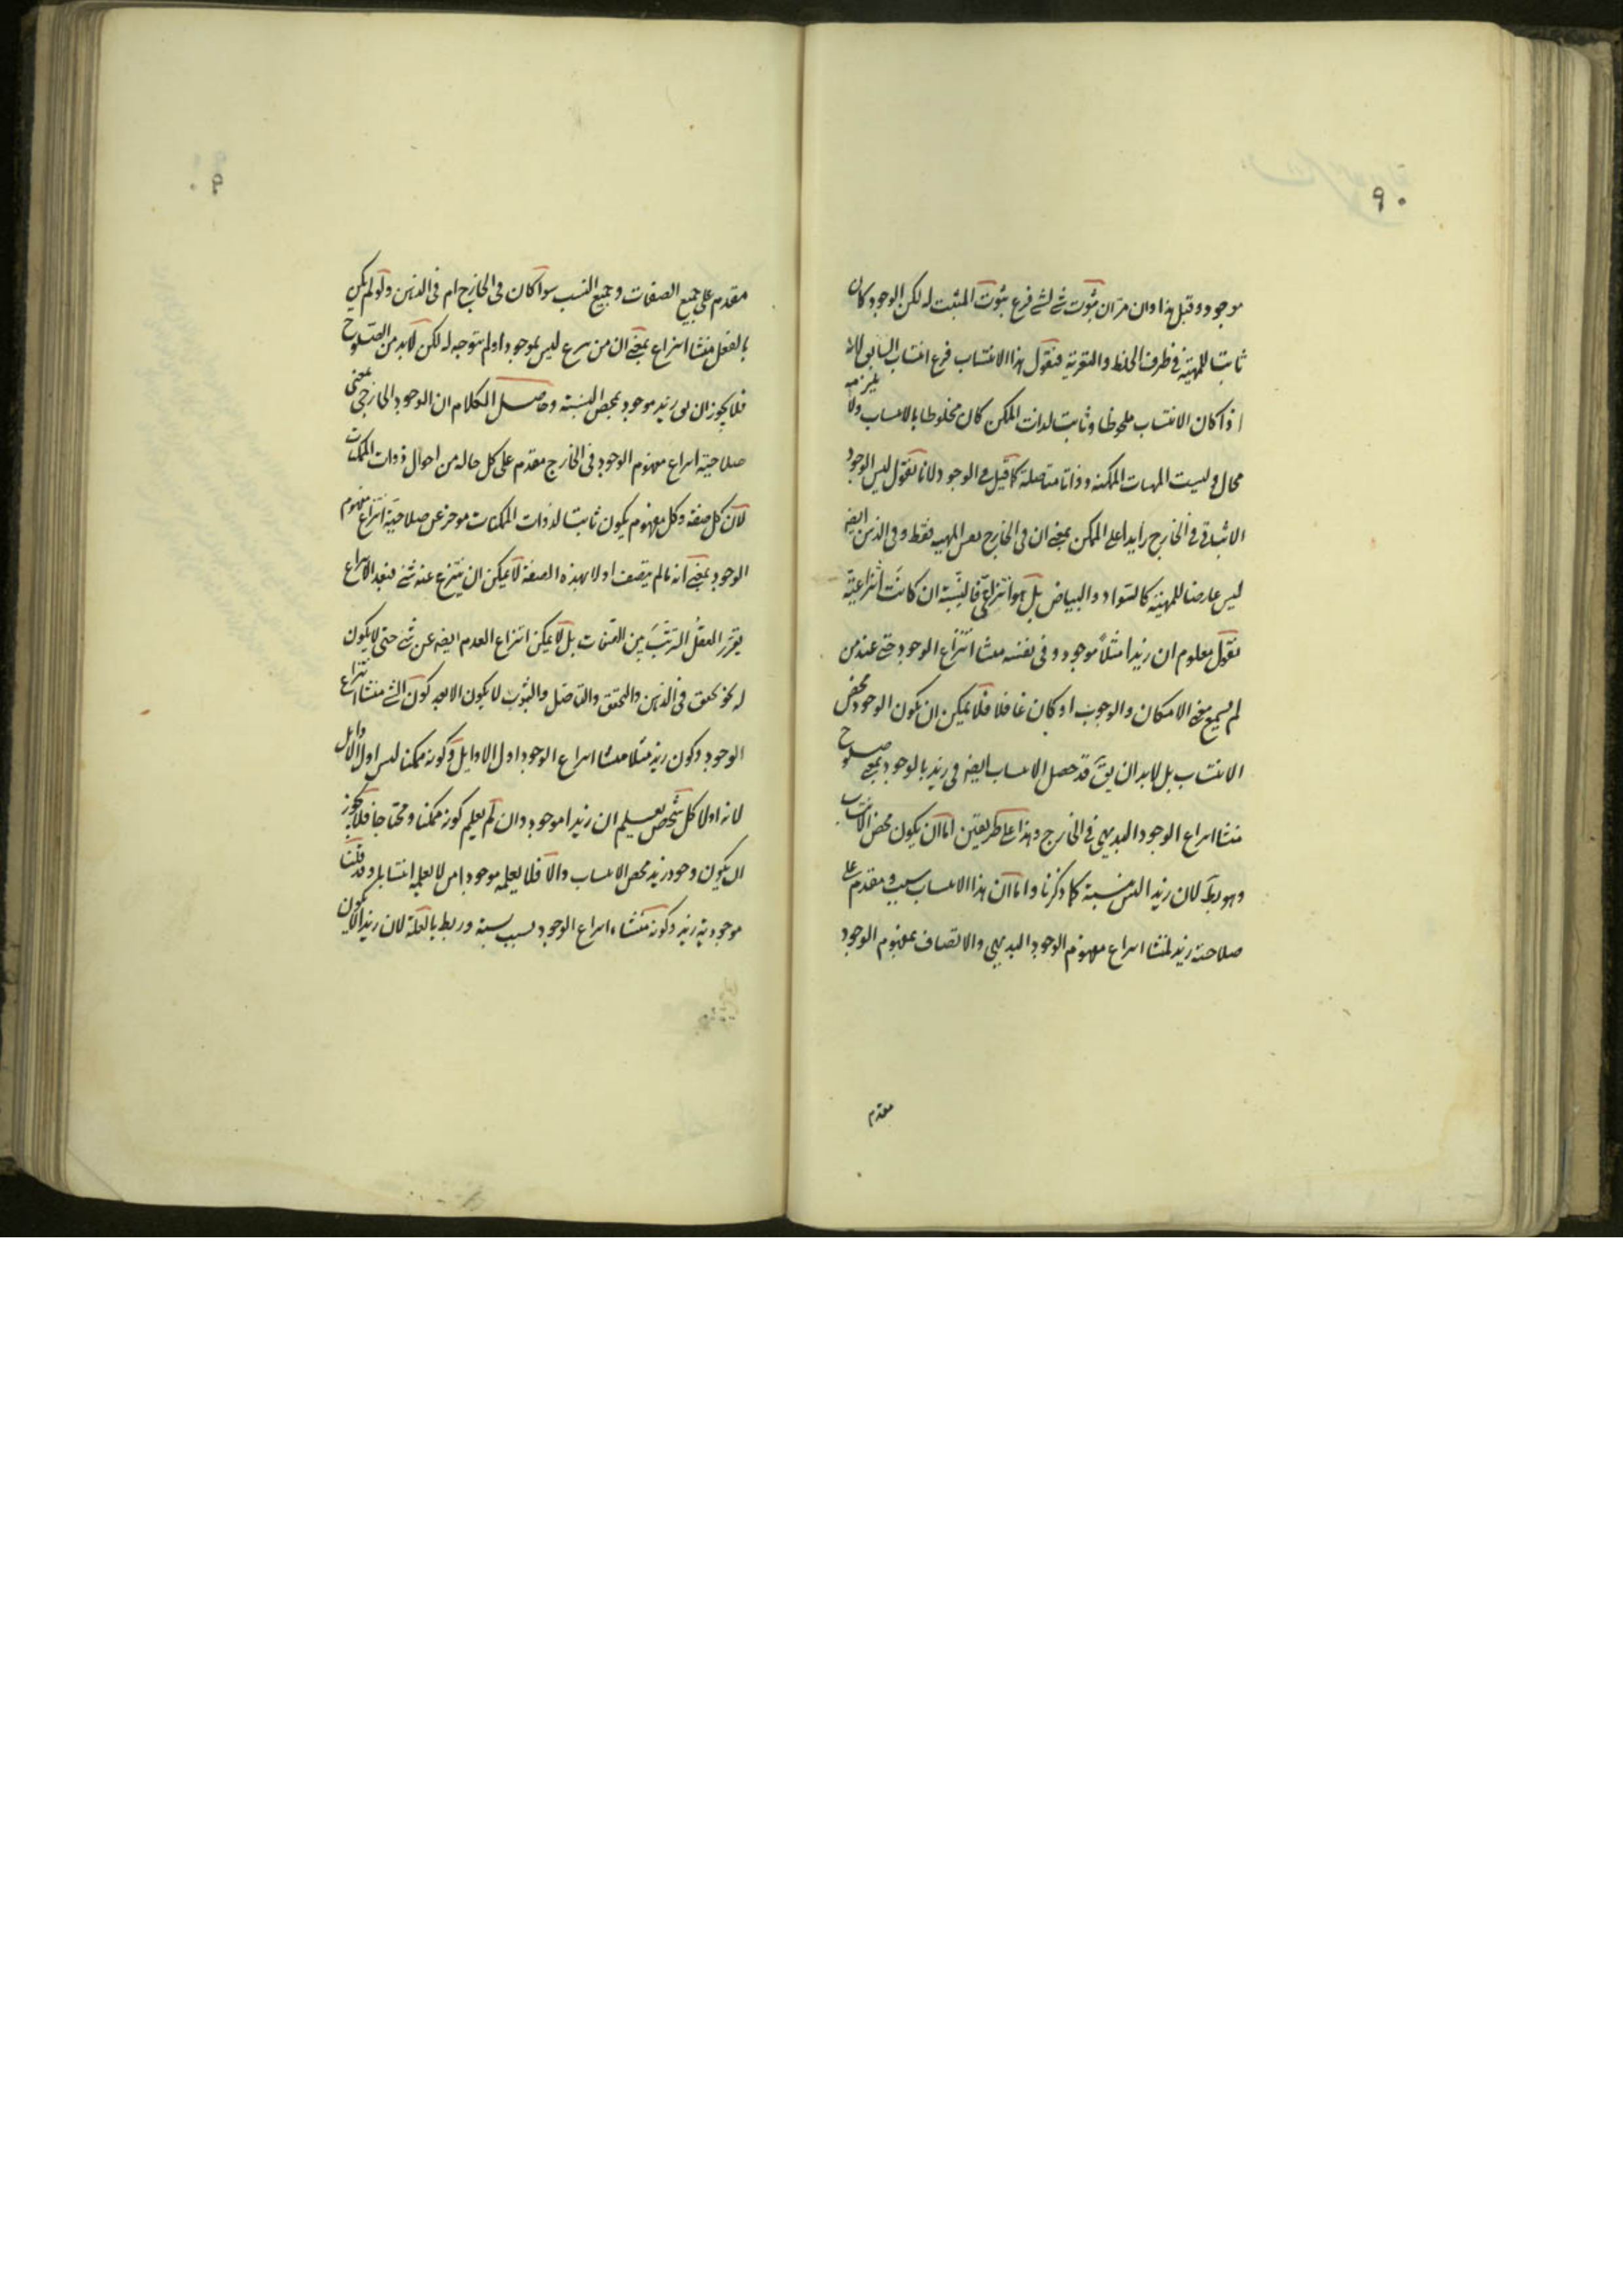 ٩٠
موجود وقبل هذا وان مر ان ثبوت شے لشے فرع ثبوت المثبت له لكن الوجود كان
ثابتا للمهية فى ظرف الخلط والتعرية فنقول هذا الانتساب فرع انتساب السابق لانه
اذا كان الانتساب ملحوظا وثابت لذات الممكن كان مخلوطا بالانتساب ولا يلزمه
محال وليست المهيات الممكنة وذاتا متاصلة كما قيل فى الوجود لانا نقول ليس الوجود
الاثباتى فى الخارج زايدا على الممكن بمعنے ان فى الخارج نفس المهية فقط وفى الذهن ايضا
ليس عارضا للمهية كالسواد والبياض بل هو انتزاعى فالنسبة ان كانت انتزاعية
نقول معلوم ان زيدا مثلا موجود وفى نفسه منشا انتزاع الوجود حتے عند من
لم يسمع معنے الامكان والوجوب او كان غافلا فلا يمكن ان يكون الوجود محض
الانتساب بل لابد ان يق قد حصل الانتساب ايضا فى زيد بالوجود بمعنے صلوح
منشا انتزاع الوجود البديهى فى الخارج وهذا على طريقين اما ان يكون محض الانتساب
وهو بط لان زيد الليس نسبة كما ذكرنا واما ان هذا الانتساب سبب ومقدم على
صلاحية زيد لمنشا انتزاع مفهوم الوجود البديهى والاتصاف بمفهوم الوجود
مقدم
٩٠
مقدم على جميع الصفات وجميع النسب سوا كان فى الخارج ام فى الذهن ولو لم يكن
بالفعل منشا انتزاع بمعنے ان من ليس بموجود او لم يتوجه له لكن لابد من الصلوح
فلا يجوز ان يق زيد موجود بمحض النسبة وحاصل الكلام ان الوجود الخارجى بمعنى
صلاحية انتزاع مفهوم الوجود فى الخارج مقدم على كل حاله من احوال ذوات الممكنات
لان كل صفة وكل مفهوم يكون ثابتا لذوات الممكنات موخر عن صلاحية انتزاع مفهوم
الوجود بمعنے انه ما لم يتصف اولا بهذه الصفة لا يمكن ان ينتزع عنه شے فبعد الانتزاع
يقرر العقل الترتب بين الصفات بل لا يمكن انتزاع العدم ايضا عن شے حتى لا يكون
له نحو تحقق فى الذهن والتحقق والتاصل والثبوت لا يكون الا بعد كون الشے منشا انتزاع
الوجود وكون زيد مثلا منشا انتزاع الوجود اول الاوايل وكونه ممكنا ليس اول الاوايل
لانه اولا كل شخص يعلم ان زيدا موجود وان لم يعلم كونه ممكنا ومحتاجا فلا يجوز
ان يكون وجود زيد محض الانتساب والا فلا يعلمه موجودا من لا يعلم انتسابه وقد قلت
موجودية زيد وكونه منشاء انتزاع الوجود بسبب نسبة وربط بالعلة لان زيدا لا يكون